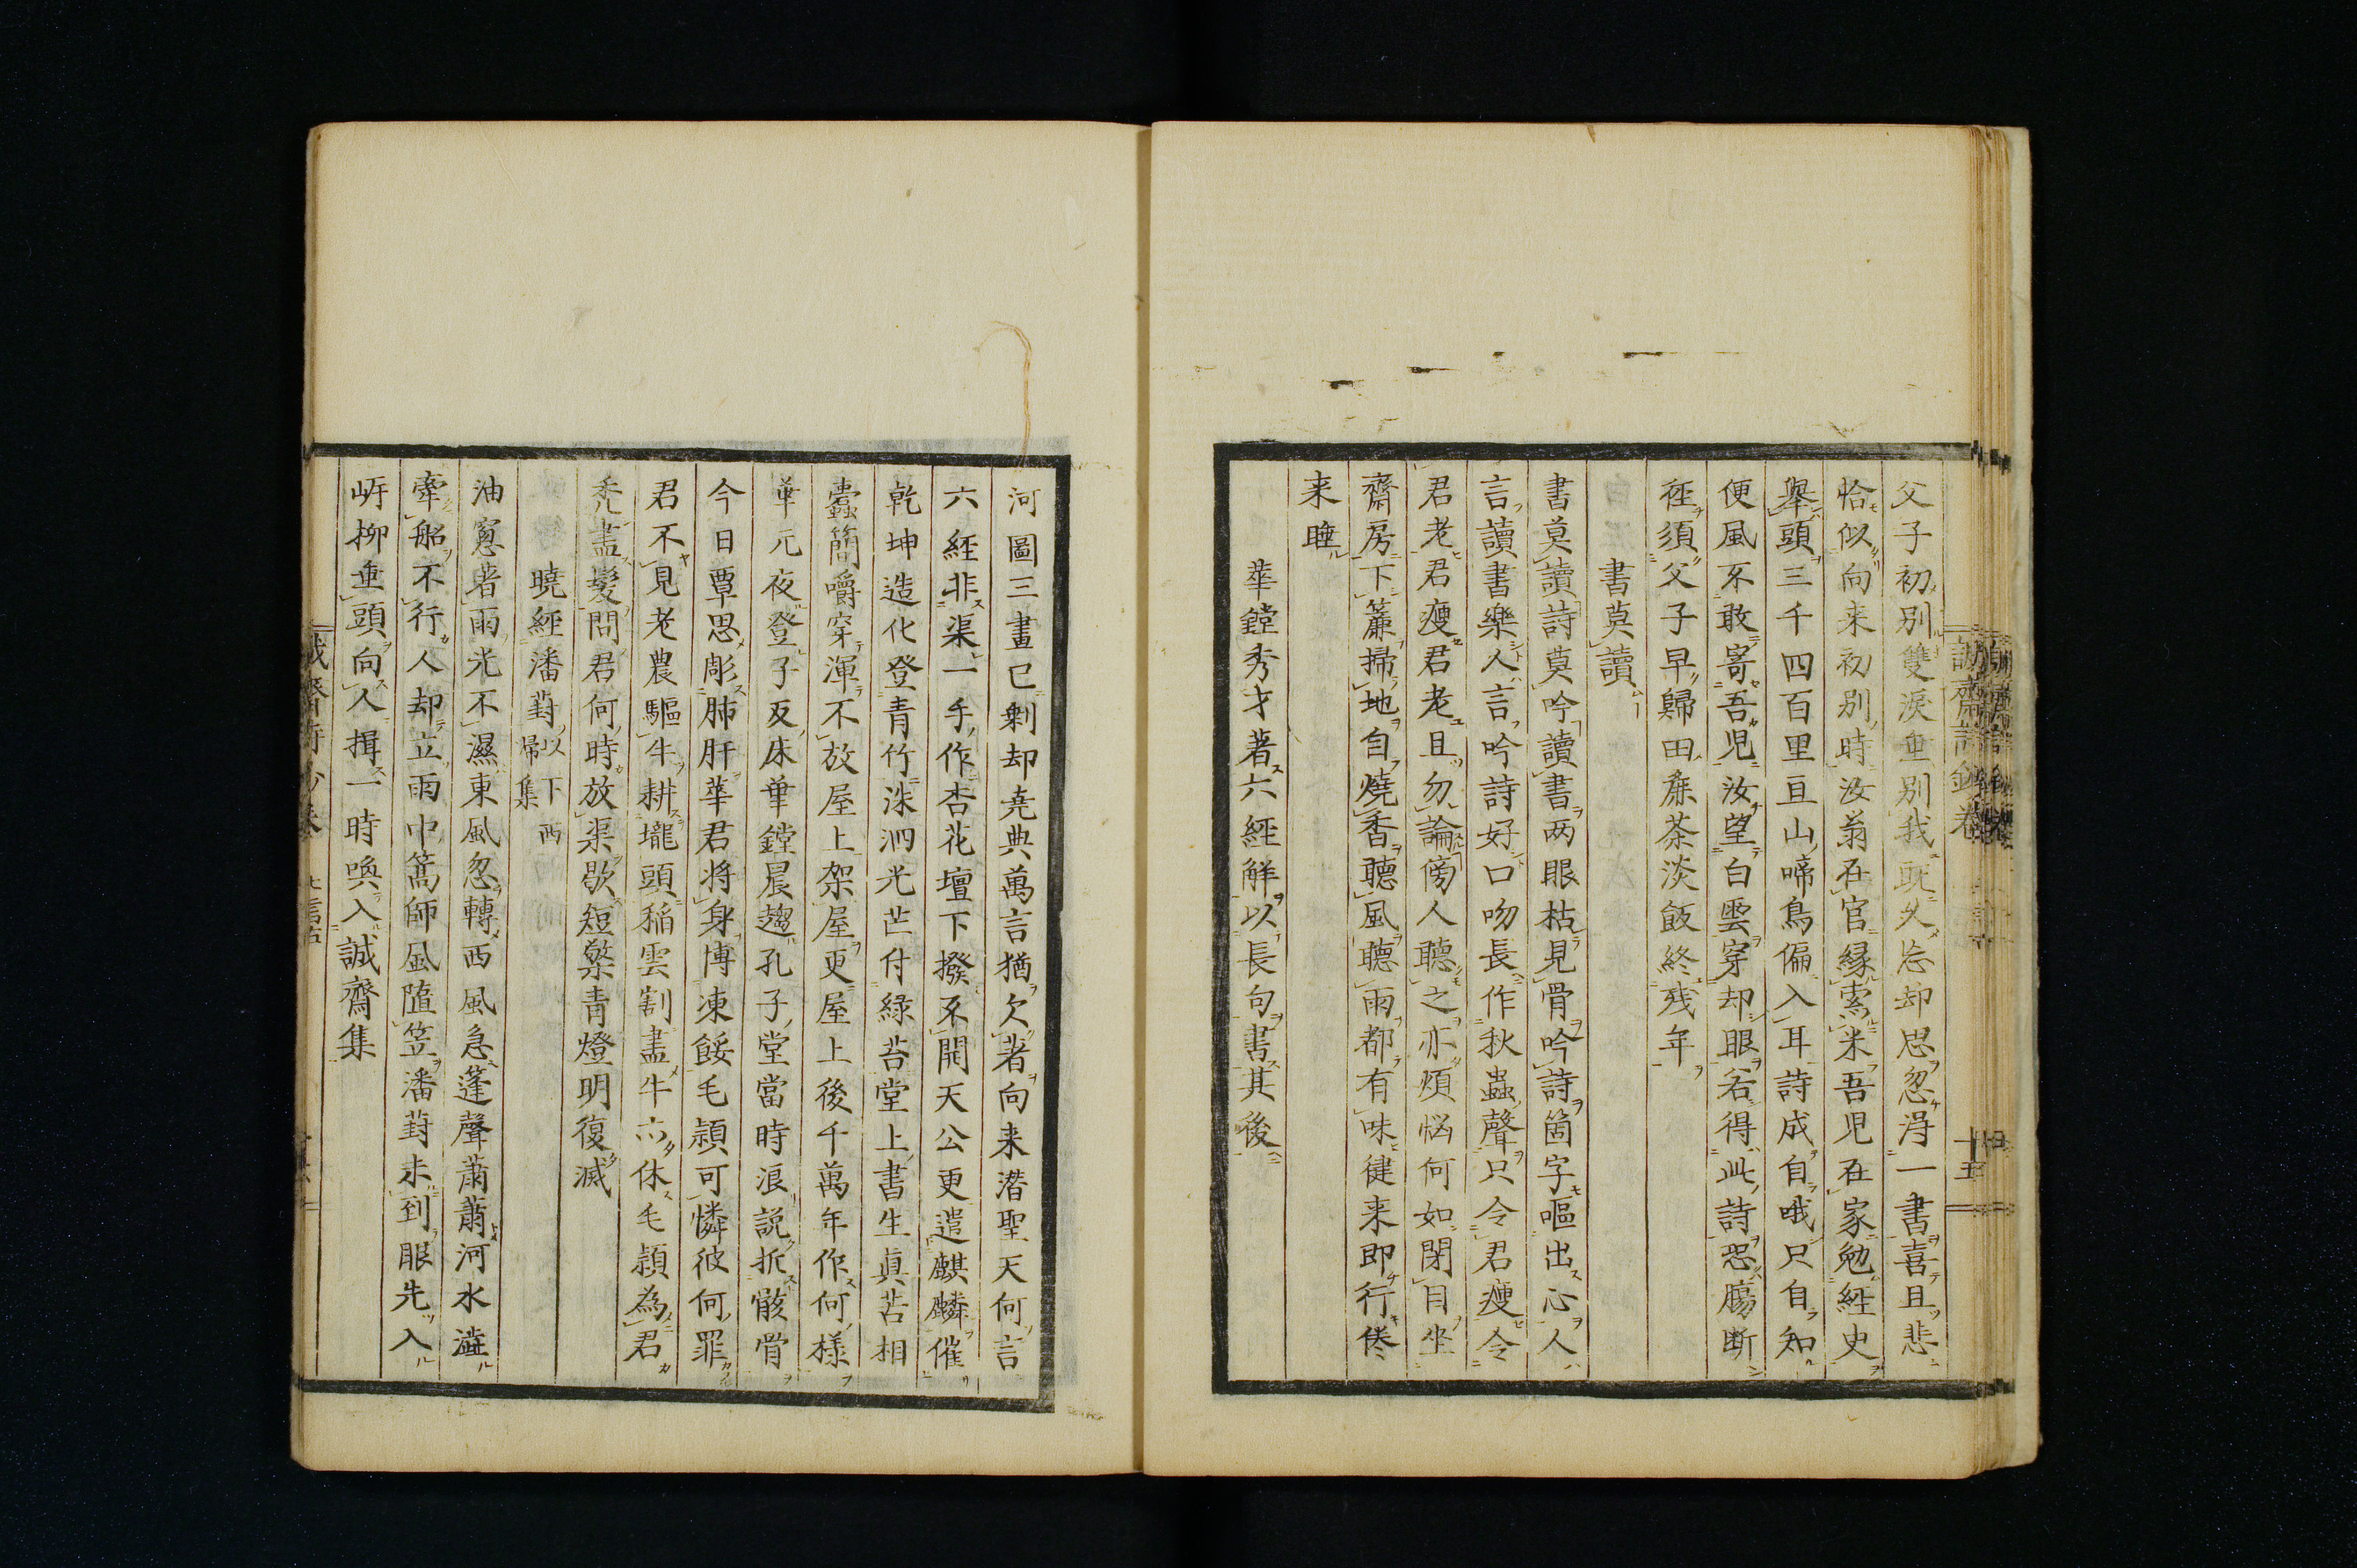 父子初別雙淚垂別我既久忘却思忽得一書喜且悲
恰似向来初別時汝翁在官縁索米吾児在家勉經史
舉頭三千四百里亘山啼鳥偏入耳詩成自哦只自知
便風不敢寄吾児汝望白雲穿却眼若得此詩恐膓断
侄須父子早歸田麁茶淡飯終残年
書莫讀
書莫讀詩莫吟讀書両眼枯見骨吟詩箇字嘔出心人
言讀書樂人言吟詩好口吻長作秋蟲聲只令君瘦令
君老君瘦君老且勿論傍人聽之亦煩惱何如閉目坐
齋房下簾掃地自燒香聽風聽雨都有味徤来即行倦
来睡
華鏜秀才著六經解以長句書其後
河圖三畫已剰却堯典萬言猶欠著向来潛聖天何言
六經非渠一手作杏花壇下撥不開天公更遣麒麟催
乾坤造化登青竹洙泗光芒付緑苔堂上書生真苦相
蠹簡嚼穿渾不放屋上架屋更屋上後千萬年作何様
華元夜登子反床華鏜晨趨孔子堂當時浪説折骸骨
今日覃思彫肺肝華君将身博凍餒毛潁可憐彼何罪
君不見老農驅牛耕壠頭稲雲割盡牛亦休毛頴為君
禿盡髮問君何時放渠歇短檠青燈明復滅
曉經潘葑以下西帰集
油窓著雨光不濕東風忽轉西風急蓬聲蕭蕭河水澁
牽船不行人却立雨中篙師風墮笠潘葑未到眼先入
岍柳垂頭向人揖一時喚入誠齋集